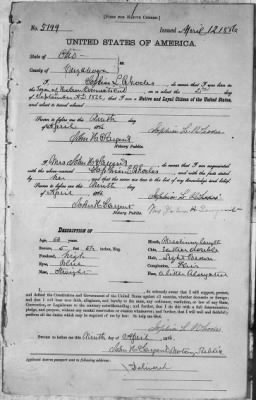 [FORM FOR NATIVE CITIZEN.]
No. 5199 Issued April 12 1886
UNITED STATES OF AMERICA.
State of Ohio
County of Cuyahoga
I, Sophia L. Rhodes, do swear that I was born in
the Town of , on or about the day
of September A.D. 1822; that I am a Native and Loyal Citizen of the United States,
and about to travel abroad
Sworn to before me this Ninth day
of April 1886 Sophia L. Rhodes
John H. Sargent
Notary Public.
I, Mrs John H. Sargent, do swear that I am acquainted
with the above-named Sophia L. Rhodes, and with the facts stated
by her, and that the same are true to the best of my knowledge and belief.
Sworn to before me this Ninth day
of April 1886 Sophia L. Rhodes
John H. Sargent Mrs John H. Sargent
Notary Public.
DESCRIPTION OF
Age: 63 years. Mouth:
Stature: 5 feet inches, Eng. Chin: rather double
Forehead: High Hair: Light Brown
Eyes: Blue Complexion: Fair
Nose: Straight Face:
I, do solemnly swear that I will support, protect,
and defend the Constitution and Government of the United States against all enemies, whether domestic or foreign;
and that I will bear true faith, allegiance, and loyalty to the same, any ordinance, resolution, or law of any State,
Convention, or Legislature to the contrary notwithstanding; and further, that I do this with a full determination,
pledge, and purpose, without any mental reservation or evasion whatsoever; and further, that I will well and faithfully
perform all the duties which may be required of me by law: So help me God.
Sophia L. Rhodes
Sworn to before me this Ninth day of April 1886
John H. Sargent Notary Public
Applicant desires passport sent to following address: